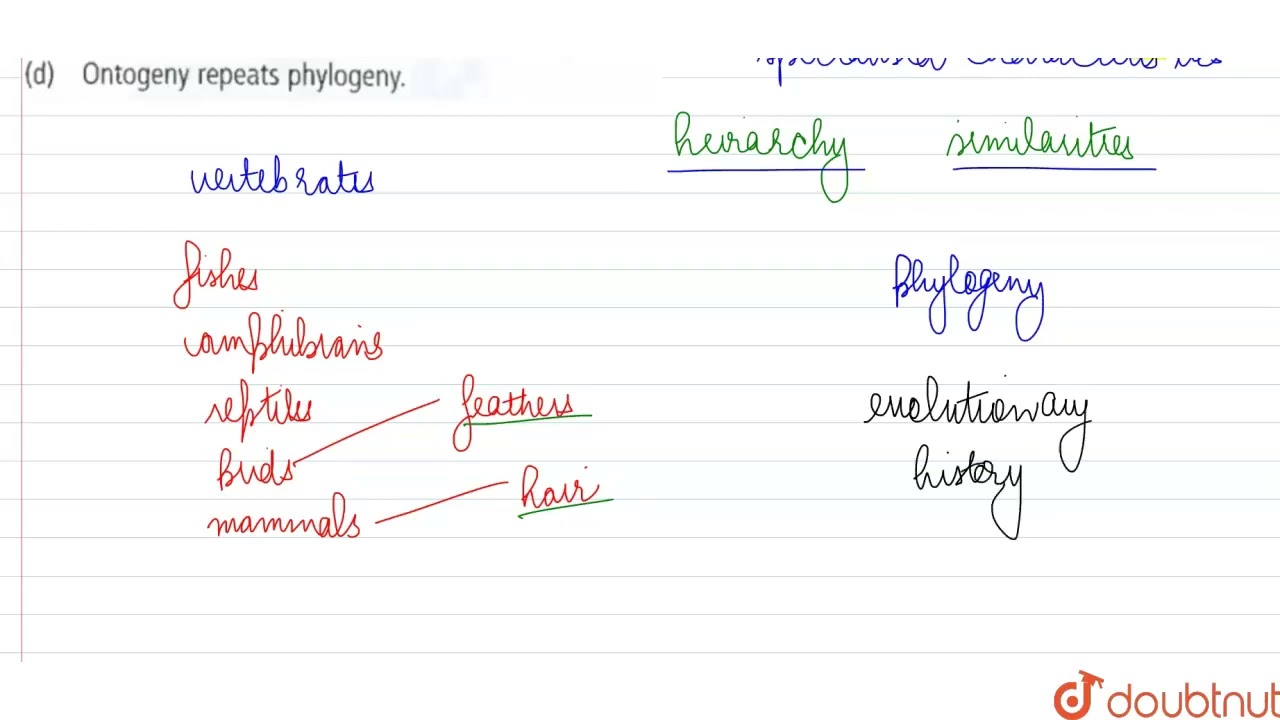 (d) Ontogeny repeats phylogeny.
heirarchy similarities
vertebrates
fishes
phylogeny
amphibians
reptiles
feathers
evolutionary
birds
history
hair
mammals
doubtnut